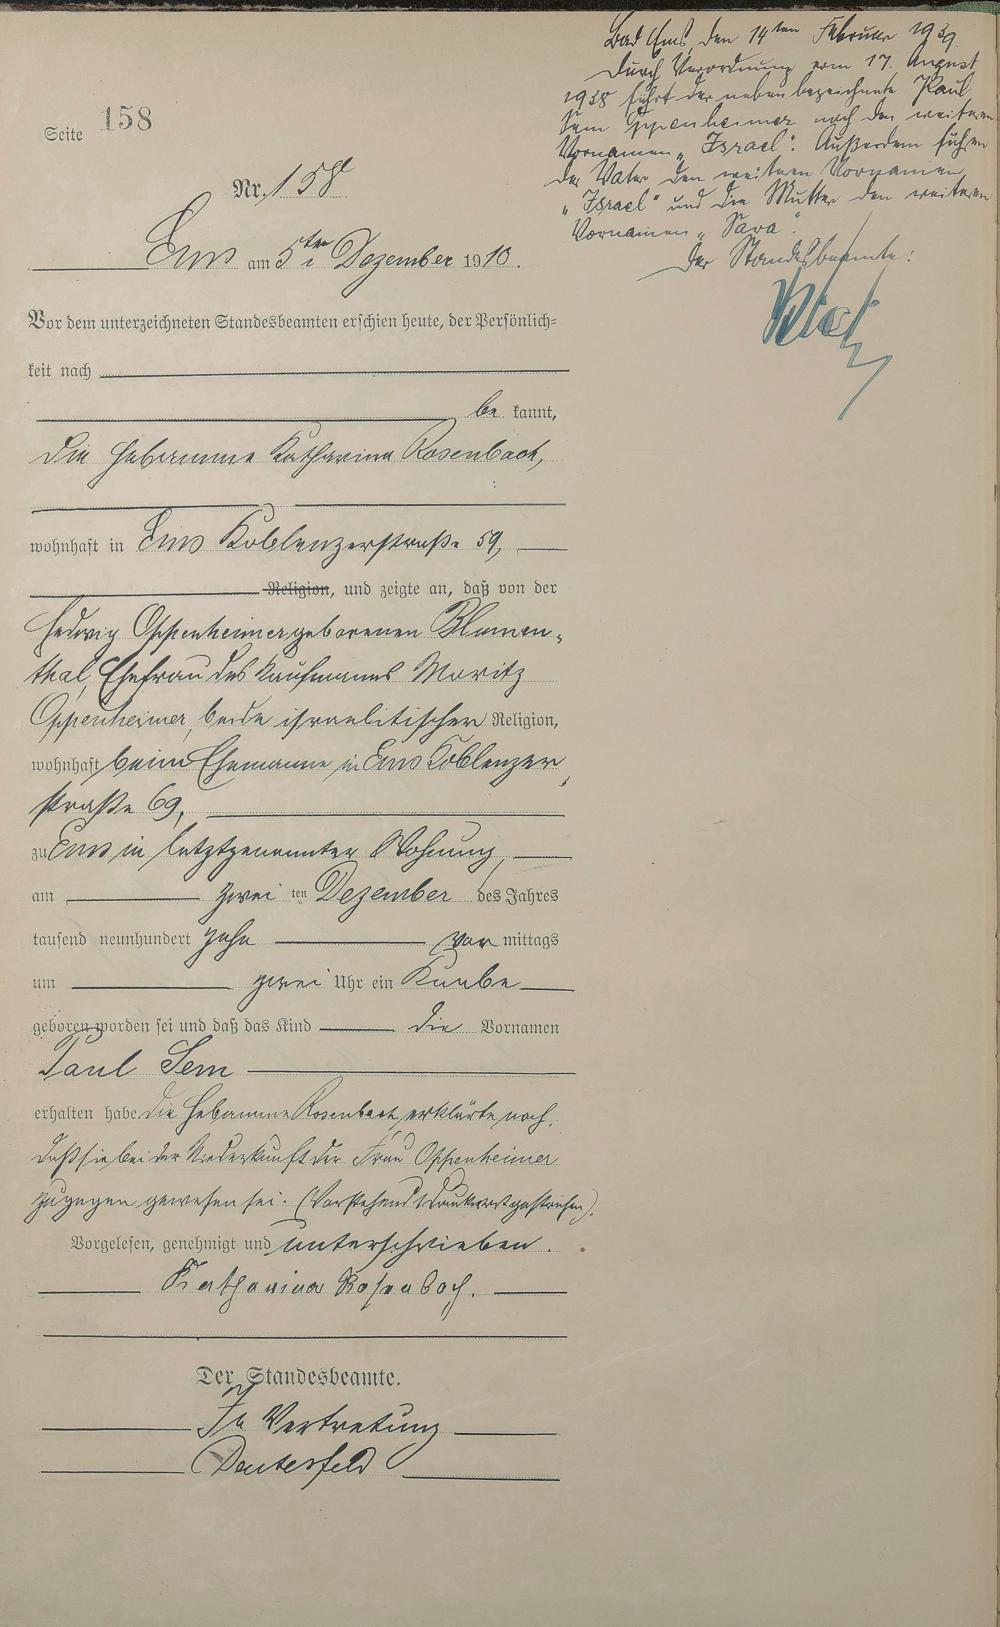 Seite 158
Nr. 158
Ems am 5ten Dezember 1910.
Vor dem unterzeichneten Standesbeamten erschien heute, der Persönlich=
keit nach
be kannt,
die Hebamme Katharina Rosenbach,
wohnhaft in Ems Koblenzerstraße 59,
Religion, und zeigte an, daß von der
Hedwig Oppenheimer geborenen Blumen-
thal, Ehefrau des Kaufmanns Moritz
Oppenheimer, beide israelitischer Religion,
wohnhaft beim Ehemanne in Ems Koblenzer
straße 69,
zu Ems in letztgenannter Wohnung,
am zwei ten Dezember des Jahres
tausend neunhundert zehn vor mittags
um zwei Uhr ein Knabe
geboren worden sei und daß das Kind die Vornamen
Paul Sem
erhalten habe. Die Hebamme Rosenbach erklärte noch,
daß sie bei der Niederkunft der Frau Oppenheimer
zugegen gewesen sei. (Vorstehend 1 Druckwort gestrichen).
Vorgelesen, genehmigt und unterschrieben.
Katharina Rosenbach.
Der Standesbeamte.
In Vertretung
Bad Ems, den 14ten Februar 1939.
Durch Verordnung vom 17. August
1938 führt der nebenbezeichnete Paul
Sem Oppenheimer noch den weiteren
Vornamen „Israel". Außerdem führen
der Vater den weiteren Vornamen
„Israel" und die Mutter den weiteren
Vornamen „Sara".
Der Standesbeamte: